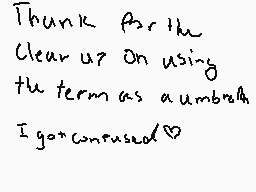 Thunk for the
clear up on using
the term as a umbrella
I got confused ♡